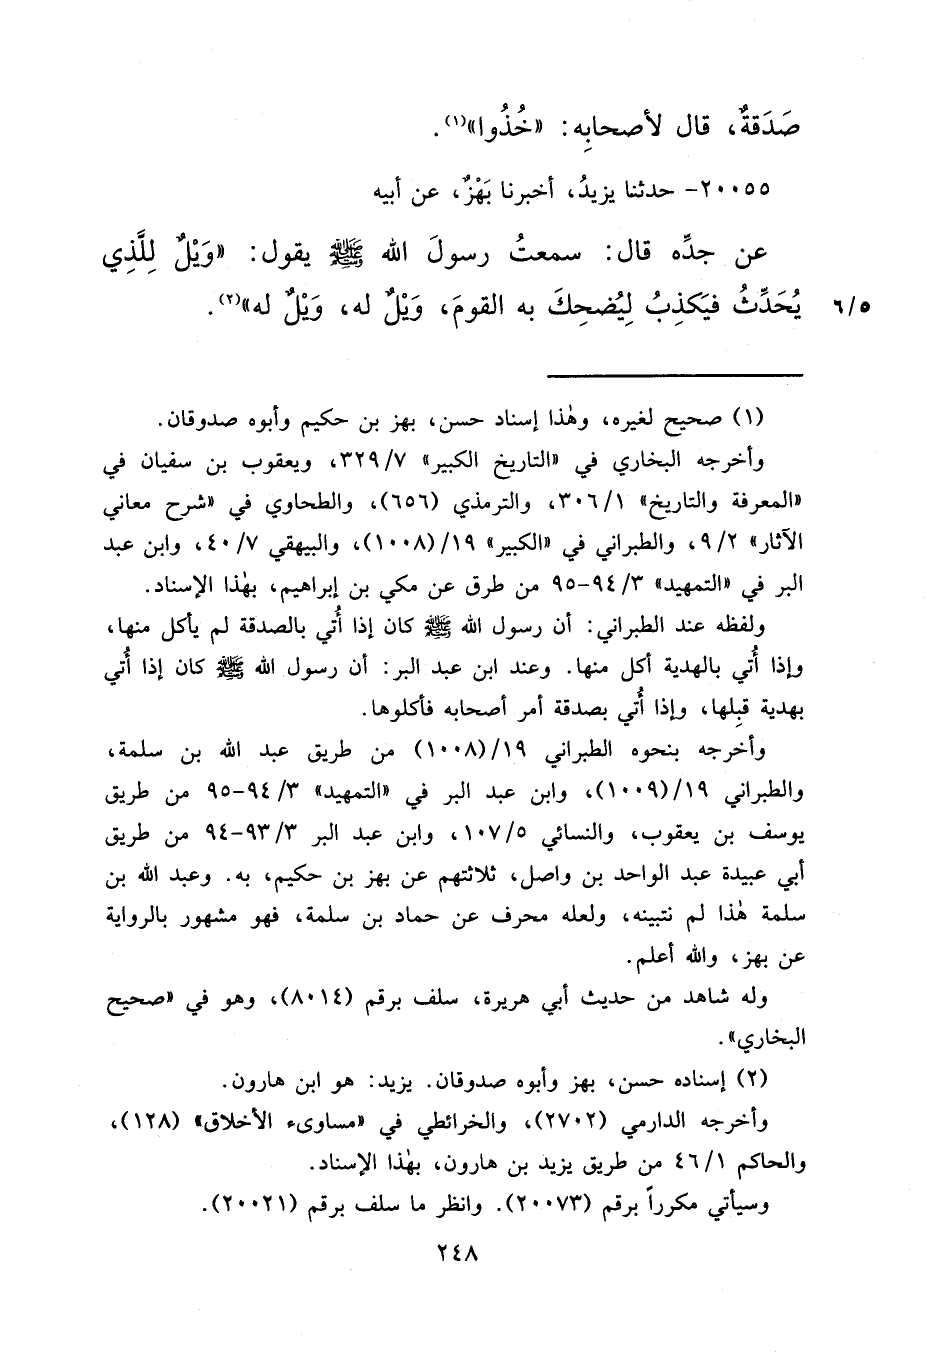 صَدَقةٌ، قال لأصحابِه: «خُذُوا»(١).
٢٠٠٥٥- حدثنا يزيدُ، أخبرنا بَهْزٌ، عن أبيه
عن جدِّه قال: سمعتُ رسولَ الله ﷺ يقول: «وَيْلٌ لِلَّذِي
يُحَدِّثُ فيَكذِبُ لِيُضحِكَ به القومَ، وَيْلٌ له، وَيْلٌ له»(٢). ٦/٥
(١) صحيح لغيره، وهٰذا إسناد حسن، بهز بن حكيم وأبوه صدوقان.
وأخرجه البخاري في «التاريخ الكبير» ٣٢٩/٧، ويعقوب بن سفيان في
«المعرفة والتاريخ» ٣٠٦/١، والترمذي (٦٥٦)، والطحاوي في «شرح معاني
الآثار» ٩/٢، والطبراني في «الكبير» ١٩/(١٠٠٨)، والبيهقي ٤٠/٧، وابن عبد
البر في «التمهيد» ٩٤/٣-٩٥ من طرق عن مكي بن إبراهيم، بهٰذا الإسناد.
ولفظه عند الطبراني: أن رسول الله ﷺ كان إذا أُتي بالصدقة لم يأكل منها،
وإذا أُتي بالهدية أكل منها. وعند ابن عبد البر: أن رسول الله ﷺ كان إذا أُتي
بهدية قبِلها، وإذا أُتي بصدقة أمر أصحابه فأكلوها.
وأخرجه بنحوه الطبراني ١٩/(١٠٠٨) من طريق عبد الله بن سلمة،
والطبراني ١٩/(١٠٠٩)، وابن عبد البر في «التمهيد» ٩٤/٣-٩٥ من طريق
يوسف بن يعقوب، والنسائي ١٠٧/٥، وابن عبد البر ٩٣/٣-٩٤ من طريق
أبي عبيدة عبد الواحد بن واصل، ثلاثتهم عن بهز بن حكيم، به. وعبد الله بن
سلمة هٰذا لم نتبينه، ولعله محرف عن حماد بن سلمة، فهو مشهور بالرواية
عن بهز، والله أعلم.
وله شاهد من حديث أبي هريرة، سلف برقم (٨٠١٤)، وهو في «صحيح
البخاري».
(٢) إسناده حسن، بهز وأبوه صدوقان. يزيد: هو ابن هارون.
وأخرجه الدارمي (٢٧٠٢)، والخرائطي في «مساوىء الأخلاق» (١٢٨)،
والحاكم ٤٦/١ من طريق يزيد بن هارون، بهٰذا الإسناد.
وسيأتي مكرراً برقم (٢٠٠٧٣). وانظر ما سلف برقم (٢٠٠٢١).
٢٤٨